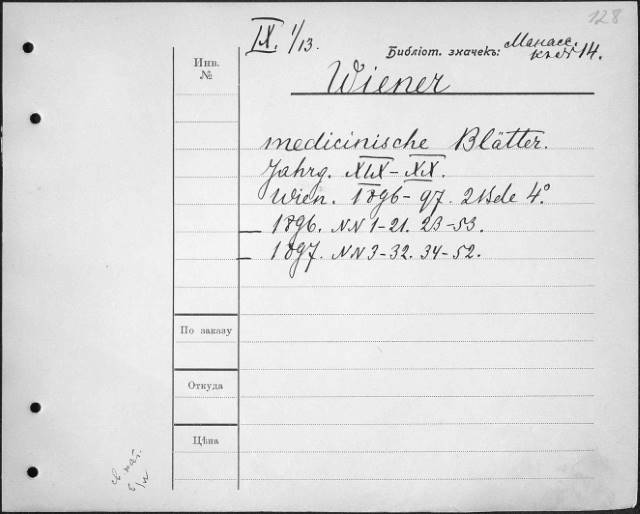 128
IX. 1/13.
Библіот. значекъ: Манасс.
14.
Инв.
№
Wiener
medicinische Blätter.
Jahrg. XIX-XX.
Wien. 1896-97. 2 Bde 4°.
1896. NN 1-21. 23-53.
1897. NN 3-32. 34-52.
По заказу
Откуда
Цѣна